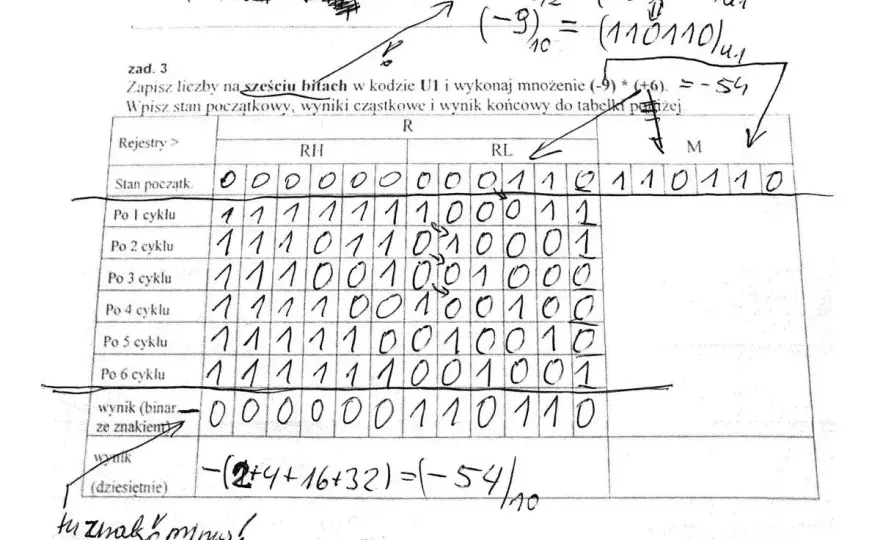 (-9)₁₀ = (110110)U1
zad. 3
Zapisz liczby na sześciu bitach w kodzie U1 i wykonaj mnożenie (-9) * (+6). = -54
Wpisz stan początkowy, wyniki cząstkowe i wynik końcowy do tabelki poniżej
Rejestry > R
RH RL M
Stan początk. 0 0 0 0 0 0 0 0 0 1 1 0 1 1 0 1 1 0
Po 1 cyklu 1 1 1 1 1 1 1 0 0 0 1 1
Po 2 cyklu 1 1 1 0 1 1 0 1 0 0 0 1
Po 3 cyklu 1 1 1 0 0 1 0 0 1 0 0 0
Po 4 cyklu 1 1 1 1 0 0 1 0 0 1 0 0
Po 5 cyklu 1 1 1 1 1 0 0 1 0 0 1 0
Po 6 cyklu 1 1 1 1 1 1 0 0 1 0 0 1
wynik (binar. – 0 0 0 0 0 0 1 1 0 1 1 0
ze znakiem)
wynik
(dziesiętnie) -(2+4+16+32) = (-54)₁₀
tu znak minus!